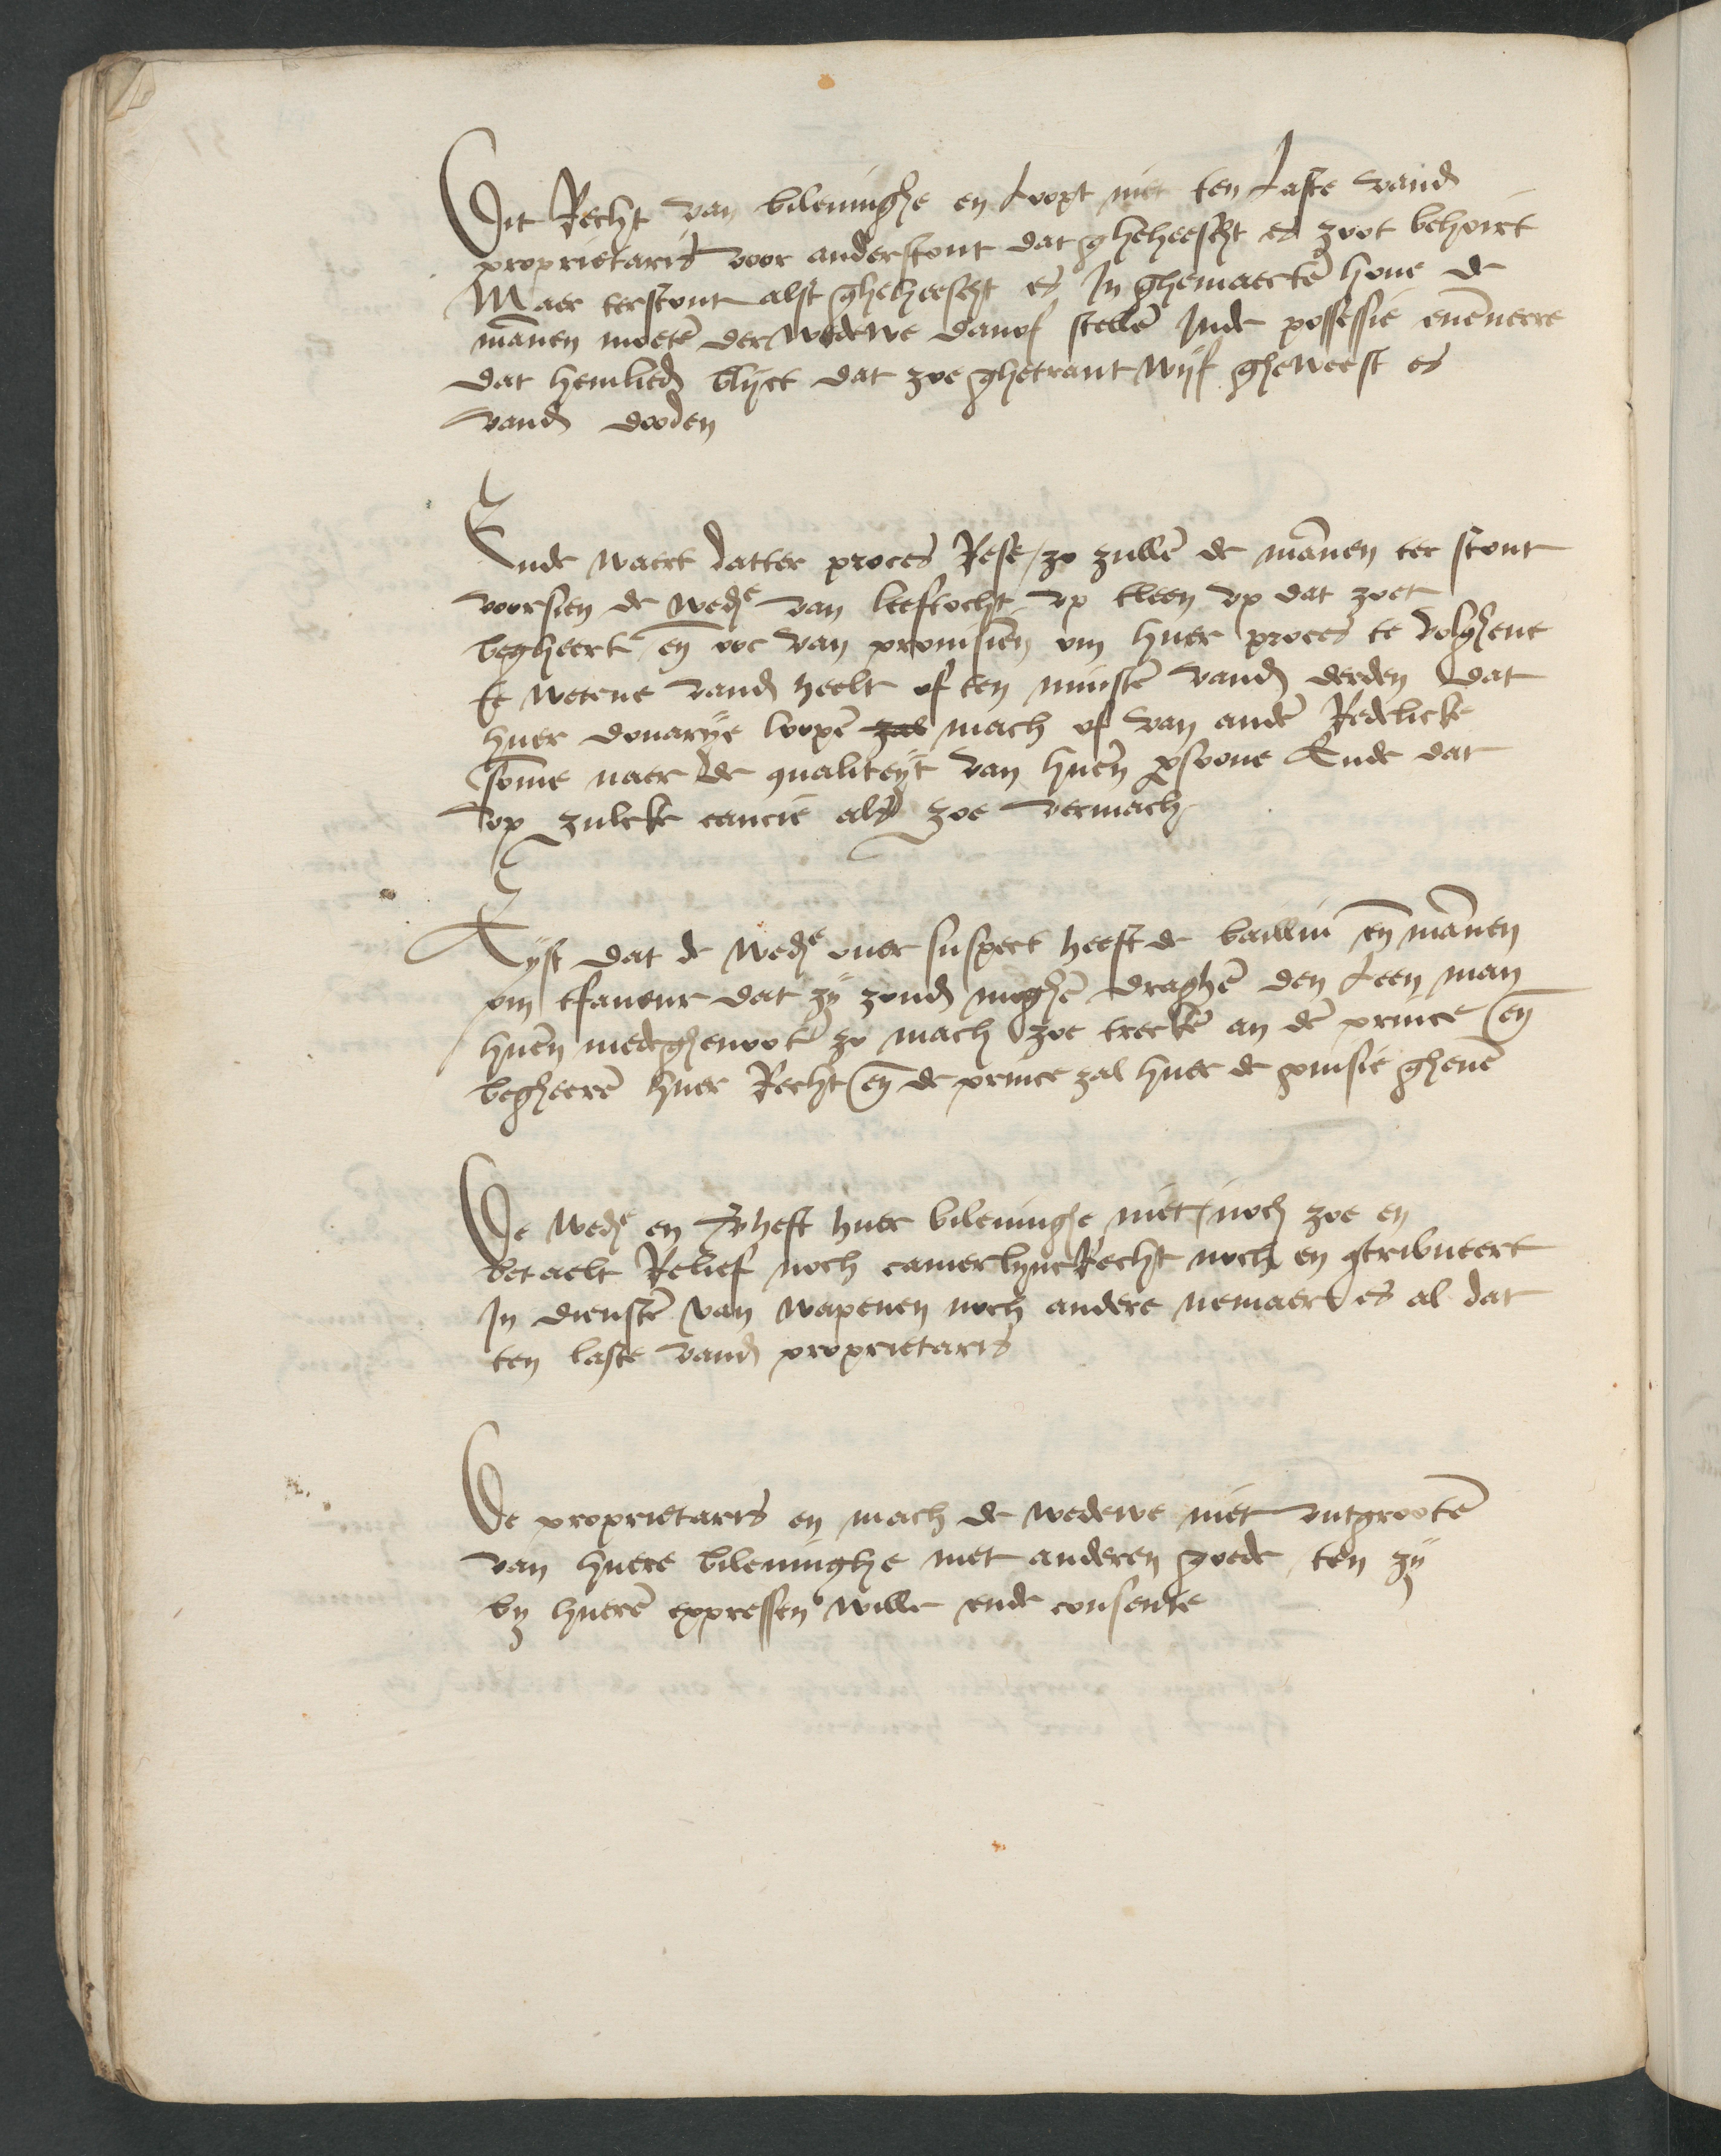 Dit Recht van bileuinghe en Loopt niet ten Laste vand
proprietaris voor anderstont dat gheheescht es zoot behoirt
Maer terstont alst gheheescht es In ghemaecte houe de
mānen moetē der wedewe danof stellē Inde possessie euēverre
dat hemlied blijct dat zoe ghetraut wijf gheweest es
vand dooden
Ende waert datter proces Rese / zo zullē de mānen ter stont
voorsien de wede van leeftocht vp tleen vp dat zoet
begheert en ooc van prouisien om huer proces te volghene
te wetene vand heelt of ten minstē vand derden dat
huer douarye loopē zal mach of van andē Redelicke
somme naer de qualiteyt van huerē psoone Ende dat
vp zulcke cautie als zoe vermach
Eyst dat de wede ouer suspect heeft de bailliu en mānen
om tfaueur dat zij zoud moghē draghē den Leen man
huerē medeghenoot zo mach zoe treckē an dē prince en
begheerē huer Recht en de prince zal huer de puisie gheuē
De wede en Verheft huer bileuinghe niet / noch zoe en
betaelt Relief noch camerlync Recht noch en gtribueert
In dienstē van wapenen noch andere nemaer es al dat
ten laste vand proprietaris
De proprietaris en mach de wedewe niet vutgrootē
van huere bileuinghe met anderen goede ten zij
by huerē expressen wille ende consente